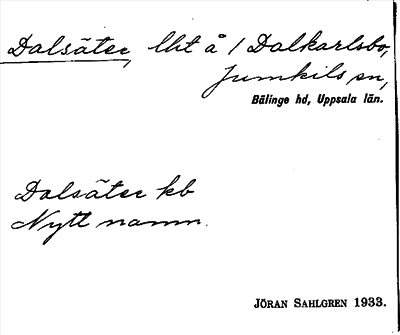 Dalsäter, lht å 1 Dalkarlsbo,
Jumkils sn,
Bälinge hd, Uppsala län.
Dalsäter kb
Nytt namn.
JÖRAN SAHLGREN 1933.